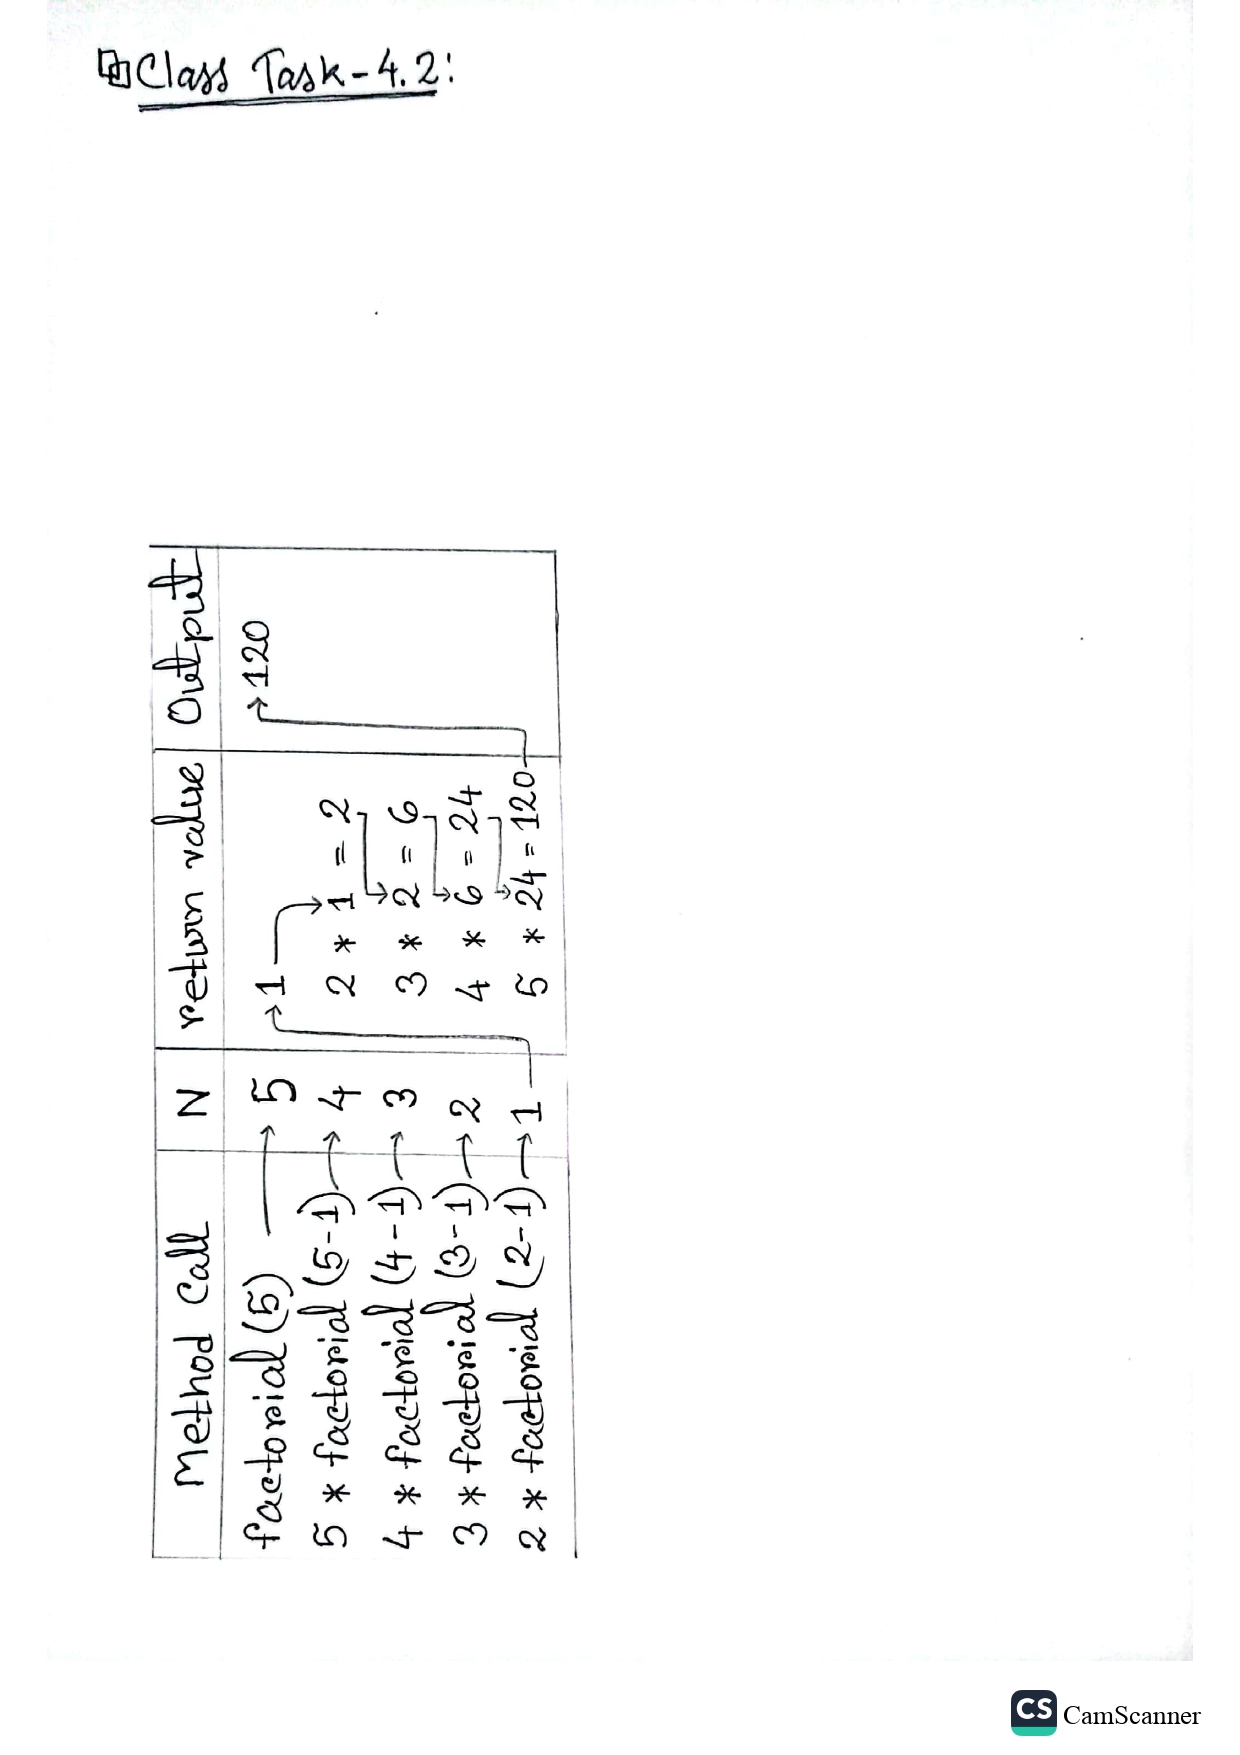 Class Task-4.2:
Method Call N return value Output
factorial (5) → 5 → 1 → 120
5 * factorial (5-1) → 4 2 * 1 = 2
4 * factorial (4-1) → 3 3 * 2 = 6
3 * factorial (3-1) → 2 4 * 6 = 24
2 * factorial (2-1) → 1 5 * 24 = 120
CS CamScanner